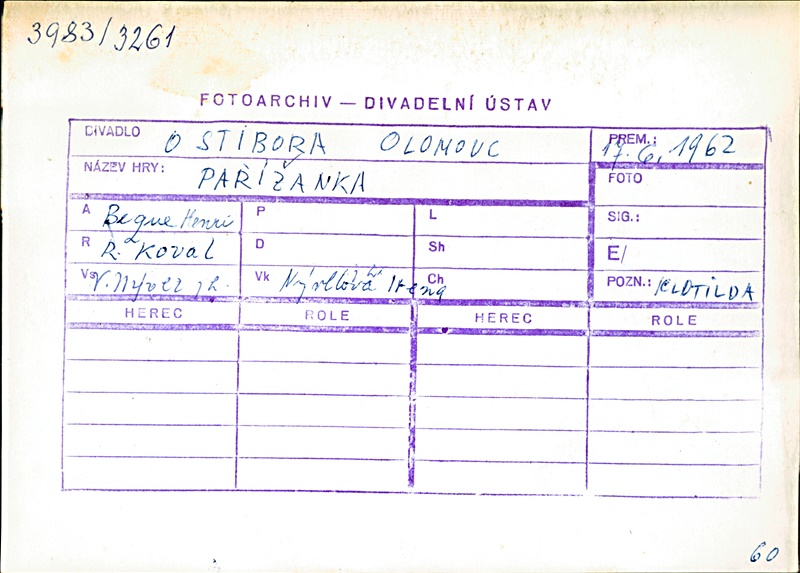 3983/3261
FOTOARCHIV — DIVADELNÍ ÚSTAV
DIVADLO O STIBORA OLOMOUC
PREM.: 17. 6. 1962
NÁZEV HRY: PAŘÍŽANKA
FOTO
A Beque Henri
P
L
SIG.:
R R. KOVAL
D
Sh
E/
Vs V. Nývlt jr.
Vk Nývltová Irena
Ch
POZN.: KLOTILDA
HEREC ROLE HEREC ROLE
60